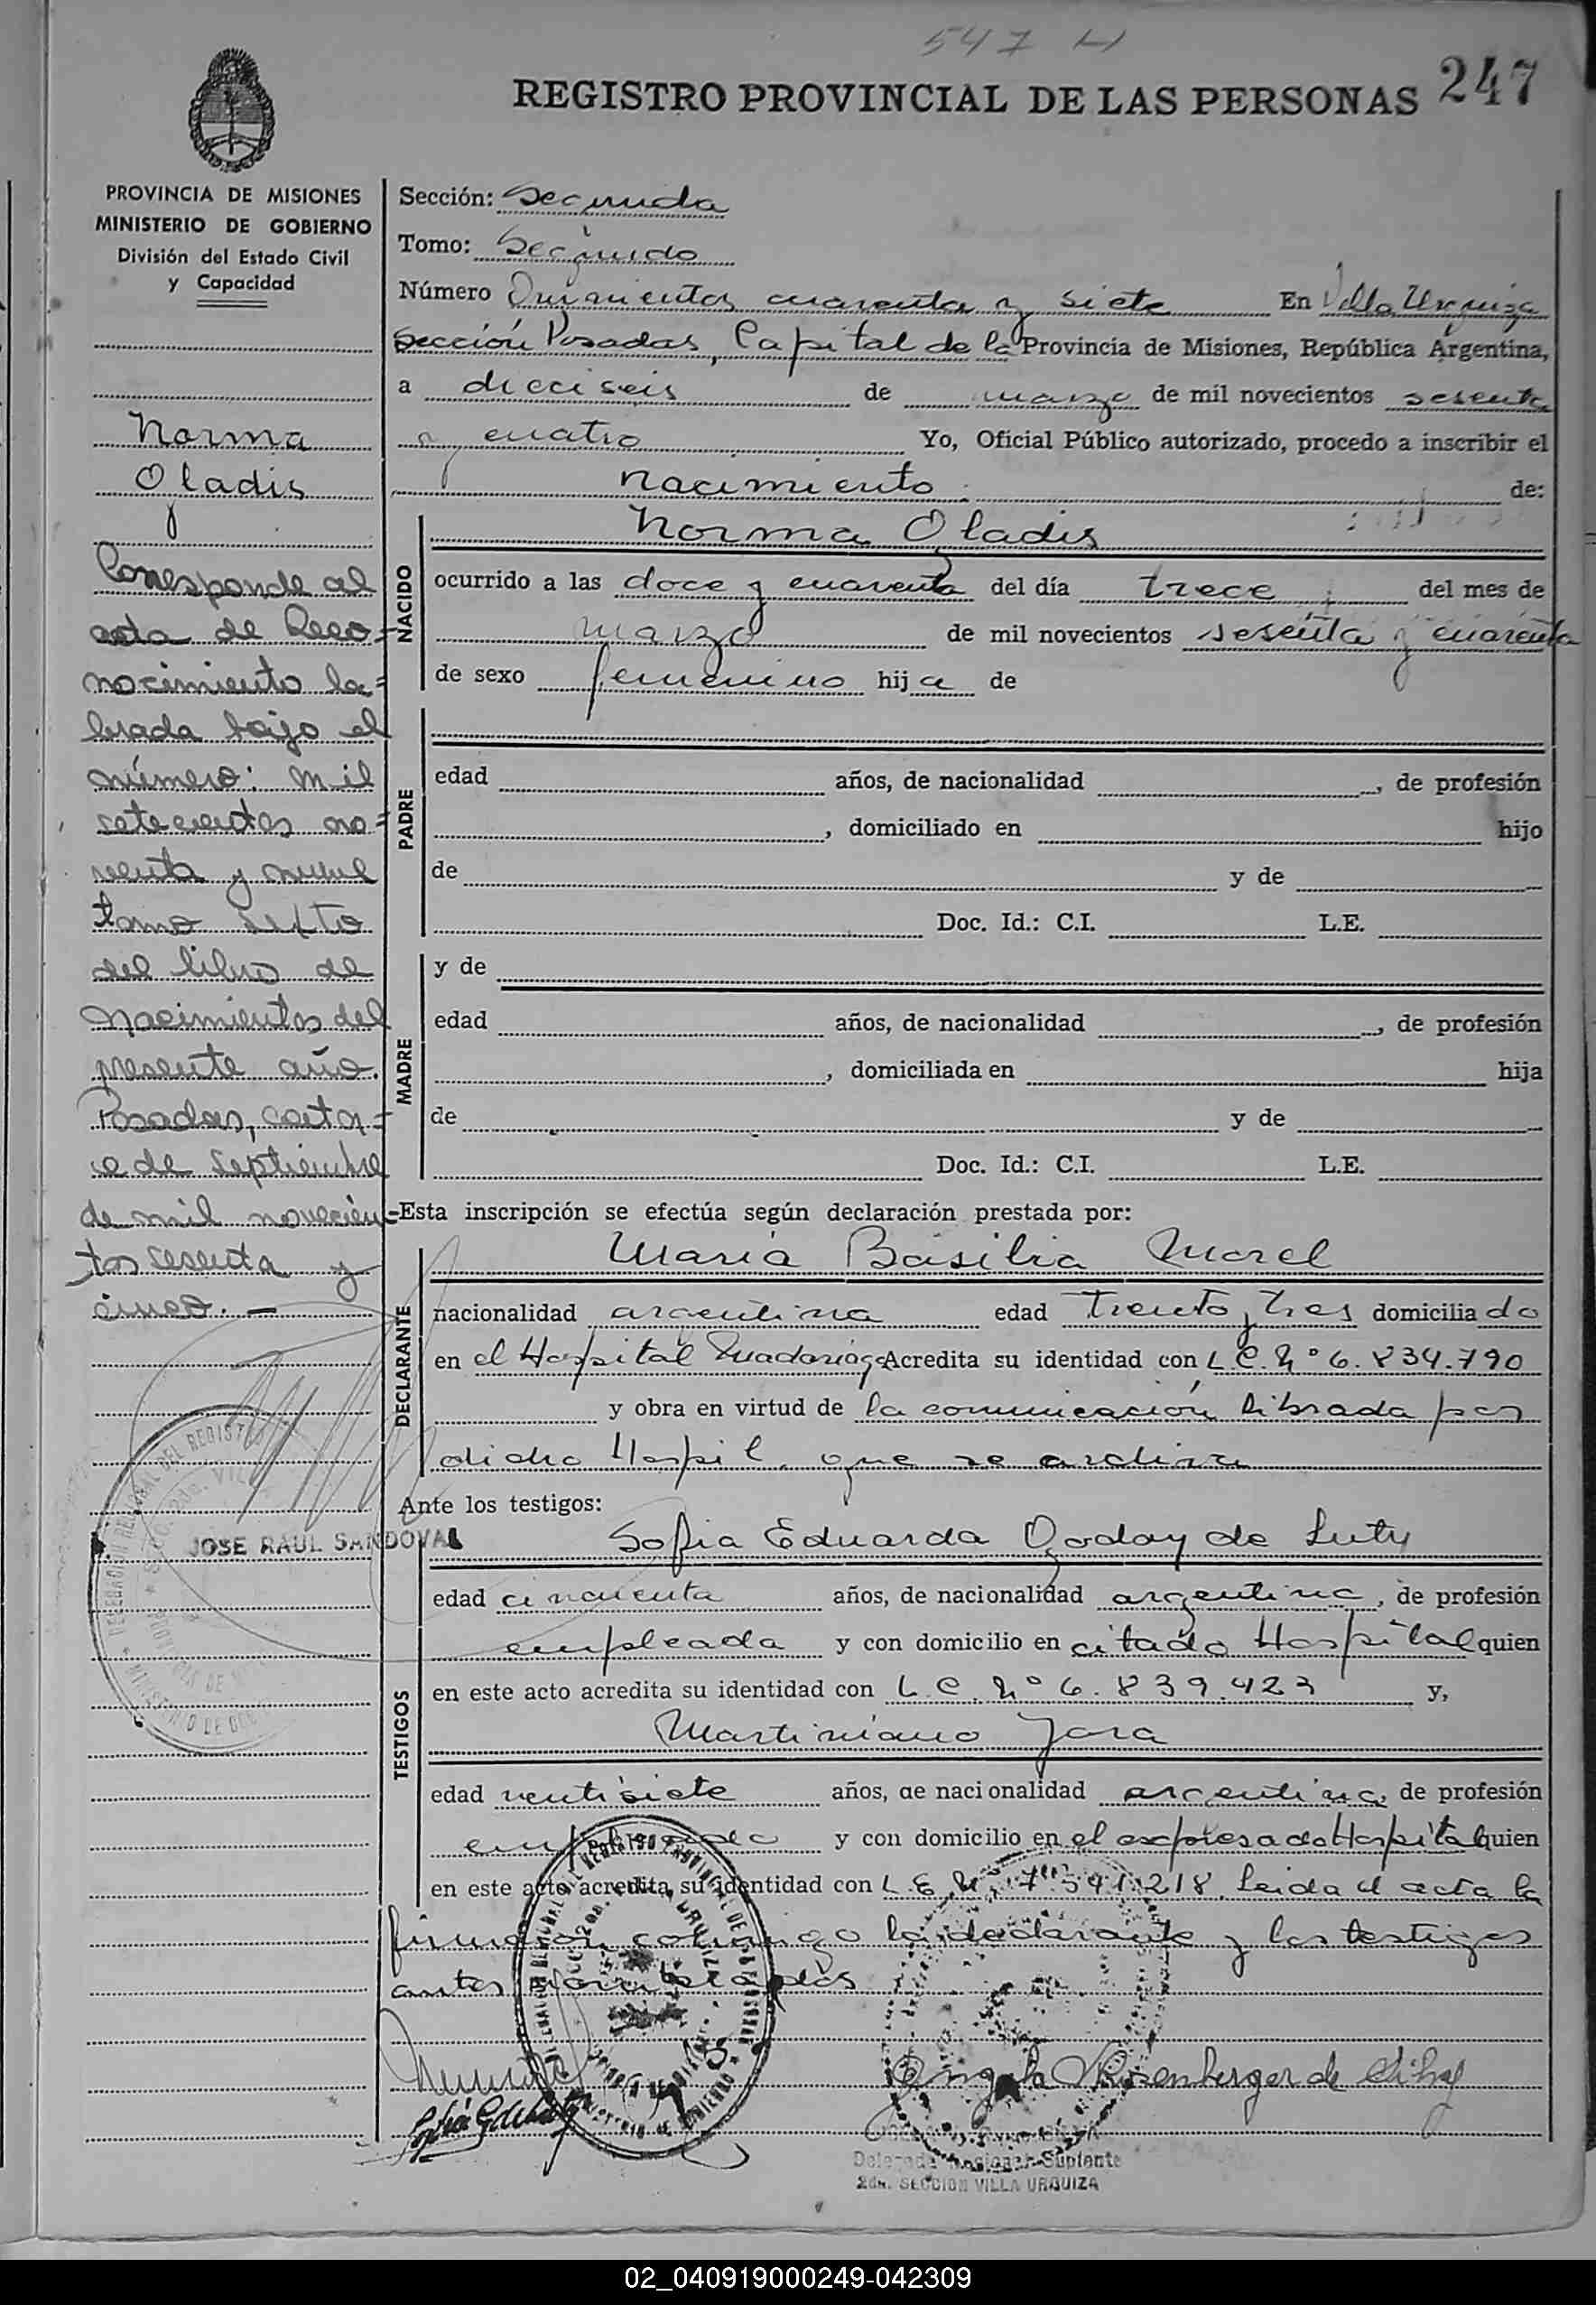 547
REGISTRO PROVINCIAL DE LAS PERSONAS 247
PROVINCIA DE MISIONES
MINISTERIO DE GOBIERNO
División del Estado Civil
y Capacidad
Norma
Gladis
Corresponde al
acta de Reco=
nocimiento la=
brada bajo el
número: mil
setecientos no=
venta y nueve
tomo sexto
del libro de
nacimientos del
presente año.
Posadas, cator=
ce de Septiembre
de mil novecien=
tos sesenta y
cinco. —
JOSE RAUL SANDOVAL
Sección: Segunda
Tomo: Segundo
Número Quinientos cuarenta y siete En Villa Urquiza
Sección Posadas, Capital de la Provincia de Misiones, República Argentina,
a dieciseis de marzo de mil novecientos sesenta
y cuatro Yo, Oficial Público autorizado, procedo a inscribir el
nacimiento de:
NACIDO
Norma Gladis
ocurrido a las doce y cuarenta del día trece del mes de
marzo de mil novecientos sesenta y cuarenta
de sexo femenino hija de
PADRE
edad años, de nacionalidad , de profesión
, domiciliado en hijo
de y de
Doc. Id.: C.I. L.E.
MADRE
y de
edad años, de nacionalidad , de profesión
, domiciliada en hija
de y de
Doc. Id.: C.I. L.E.
Esta inscripción se efectúa según declaración prestada por:
DECLARANTE
María Basilia Morel
nacionalidad argentina edad treinta y tres domiciliado
en el Hospital Madariaga Acredita su identidad con L.C. Nº 6.834.790
y obra en virtud de la comunicación librada por
dicho Hospil, que se archiva
Ante los testigos:
TESTIGOS
Sofia Eduarda Godoy de Luty
edad cincuenta años, de nacionalidad argentina, de profesión
empleada y con domicilio en citado Hospital quien
en este acto acredita su identidad con L.C. Nº 6.839.423 y,
Martiniano Jara
edad veintisiete años, de nacionalidad argentina, de profesión
empleado y con domicilio en el expresado Hospital quien
en este acto acredita su identidad con L.E. Nº 7.541.218. Leida el acta la
firmaron conmigo la declarante y los testigos
antes nombrados
Delegada Regional Suplente
2da. SECCION VILLA URQUIZA
02_040919000249-042309